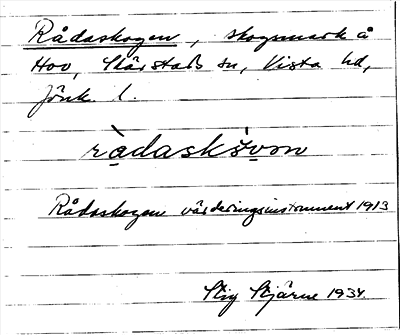 Rådaskogen, skogsmark å
Hov, Skärstads sn, Vista hd,
Jönk. l.
ràdaskóvon
Rådaskogen värderingsinstrument 1913
Stig Stjärne 1934.